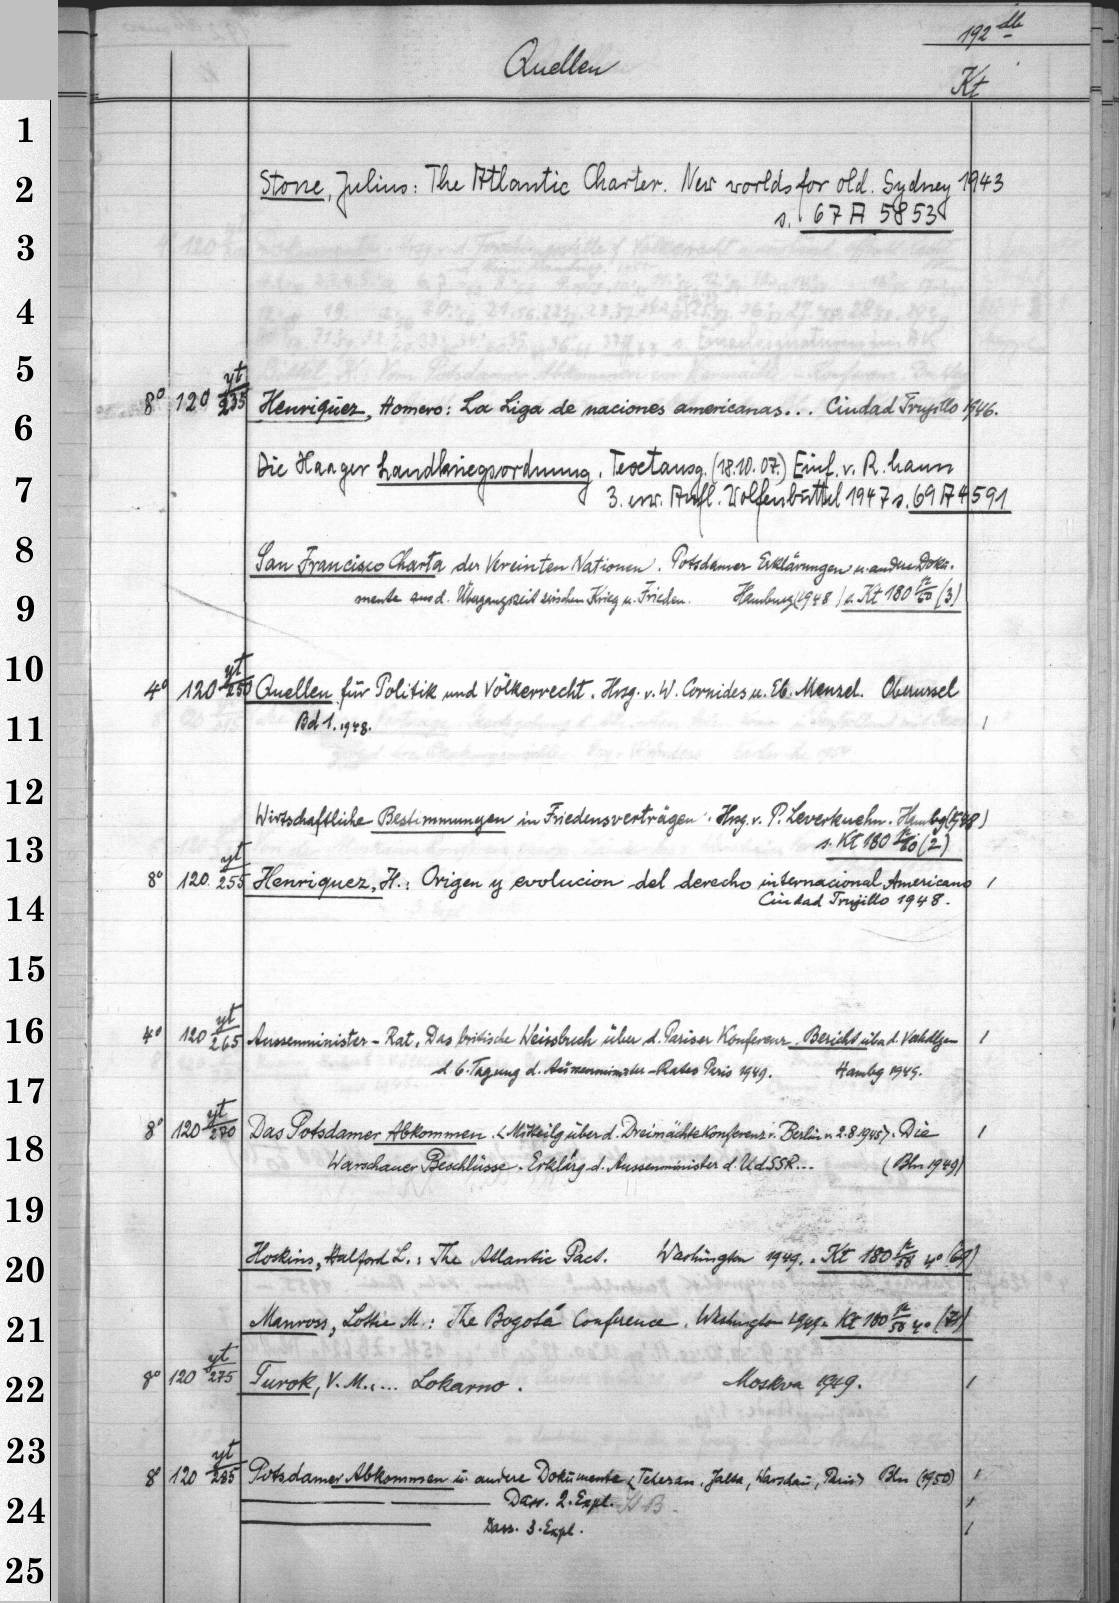 192 db
Quellen
Kt
1
2 Stone, Julius: The Atlantic Charter. New worlds for old. Sydney 1943
s. 67 A 5853
3
4
5
yt
8° 120 235 Henriquez, Homero: La Liga de naciones americanas... Ciudad Trujillo 1946.
6
Die Haager Landkriegsordnung. Textausg. (18.10.07.) Einf. v. R. Laun
7 3. erw. Aufl. Wolfenbüttel 1947 s. 69 A 4591
8 San Francisco Charta der Vereinten Nationen. Potsdamer Erklärungen u. andere Doku-
9 mente aus d. Übergangszeit zwischen Krieg u. Frieden. Hamburg (1948) s. Kt 180 60 (3)
10 yt
4° 120 250 Quellen für Politik und Völkerrecht. Hrsg. v. W. Cornides u. Eb. Menzel. Oberursel
11 Bd 1. 1948. 1
12
Wirtschaftliche Bestimmungen in Friedensverträgen. Hrsg. v. P. Leverkuehn. Hambg (1948)
13 s. Kt 180 60 (2)
yt
8° 120 255 Henriquez, H.: Origen y evolucion del derecho internacional Americano 1
14 Ciudad Trujillo 1948.
15
yt
16 4° 120 265 Aussenminister-Rat, Das britische Weissbuch über d. Pariser Konferenz. Bericht über d. Verhdlgen 1
d. 6. Tagung d. Aussenminister-Rates Paris 1949. Hambg 1949.
17
yt
8° 120 270 Das Potsdamer Abkommen. <Mitteilg über d. Dreimächtekonferenz v. Berlin v. 2.8.1945>. Die 1
18 Warschauer Beschlüsse. Erklärg d. Aussenminister d. UdSSR... (Bln 1949)
19
20 Hoskins, Halford L.: The Atlantic Pact. Washington 1949. Kt 180 58 4° (69)
21 Manross, Lottie M.: The Bogotá Conference. Washington 1949. Kt 180 58 4° (71)
yt
22 8° 120 275 Turok, V. M.: ... Lokarno. Moskva 1949. 1
23
yt
8° 120 285 Potsdamer Abkommen u. andere Dokumente <Teheran, Jalta, Warschau, Paris> Bln (1950) 1
24 Dass. 2. Expl. 1
Dass. 3. Expl. 1
25